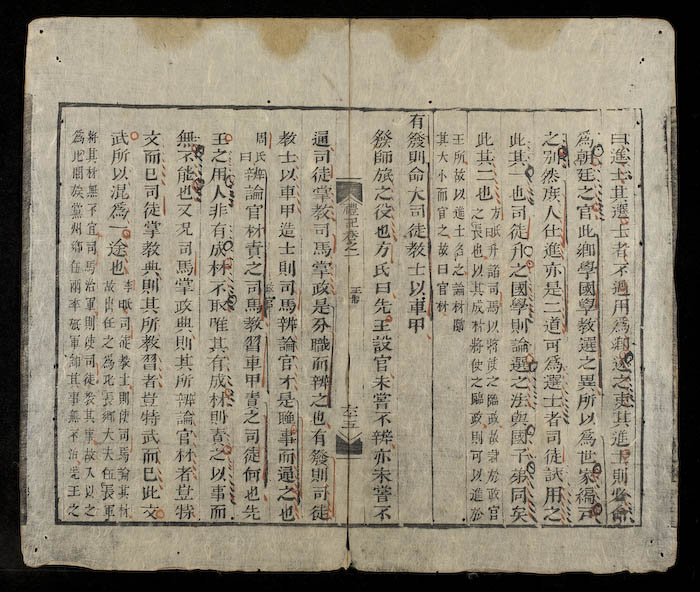 曰進士其選士者不過用為鄉遂之吏其進士則必命
為朝廷之官此鄉學國學教選之異所以為世家編戶
之別然族人仕進亦是二道可為選士者司徒試用之
此其一也司徒升之國學則論選之法與國子弟同矣
此其二也
方氏曰升諸司馬以將使之臨政故隸於政官
之長也以其成材將使之臨政則可以進於
王所故以進士名之論材隨
其大小而官之故曰官材
有發則命大司徒教士以車甲
發師旅之役也方氏曰先王設官未嘗不辨亦未嘗不
禮記卷之
通司徒掌教司馬掌政是分職而辨之也有發則司徒
教士以車甲造士則司馬辨論官才是聯事而通之也
周氏曰辨論官材責之司馬教習車甲責之司徒何也先
王之用人非有成材不取唯其有成材則責之以事而
無不能也又況司馬掌政典則其所辨論官材者豈特
文而已司徒掌教典則其所教習者豈特武而已此文
武所以混為一途也
李氏司徒教士則使司馬論其材
故出任之為比長鄉大夫伍長軍
將其材無不宜司馬治軍則使司徒教其事故入以之
為比閭族黨州鄉任兩卒旅軍師其事無不治先王之